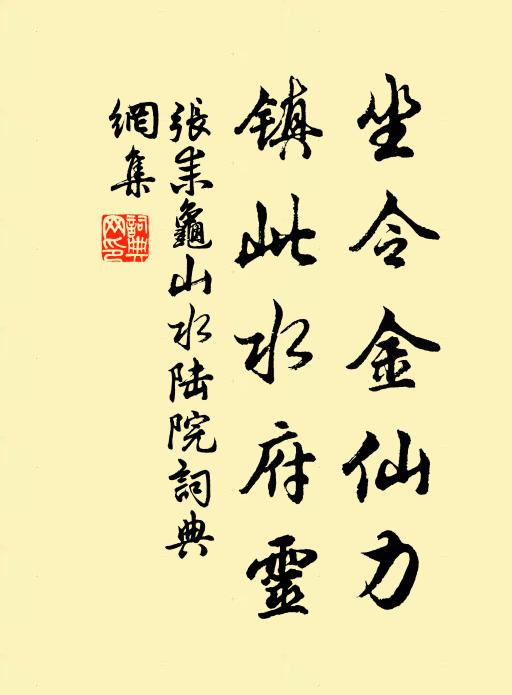 坐令金仙力
鎮此水府靈
張耒龜山水陆院詞典
網集
詞典
网印